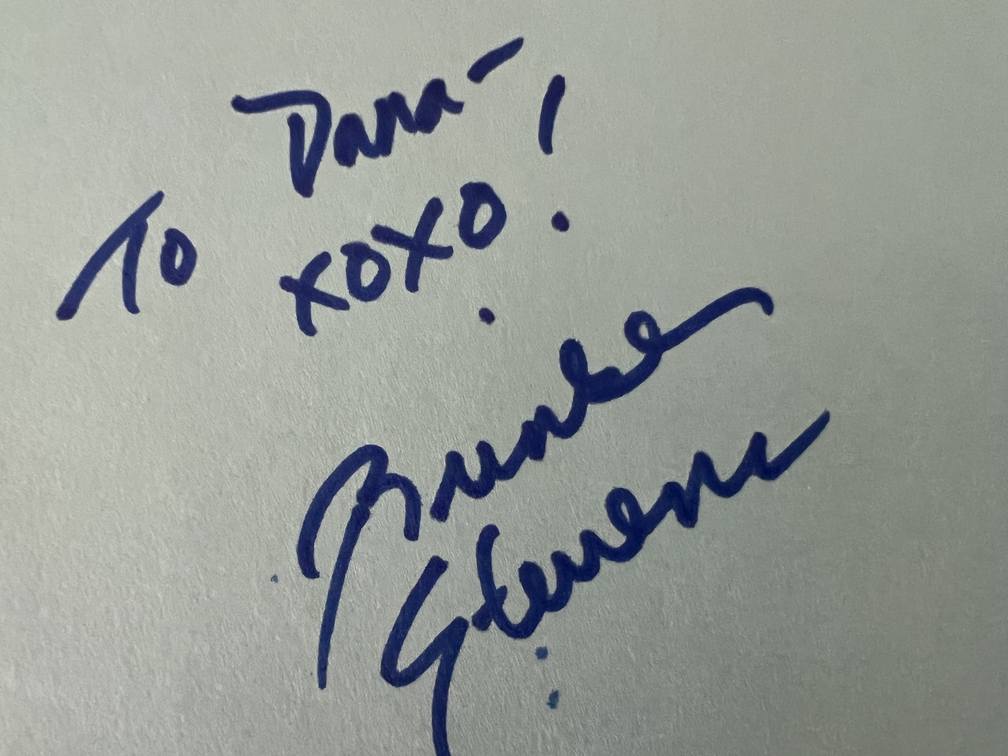 To Dana-
XOXO!
Brinke
Stevens